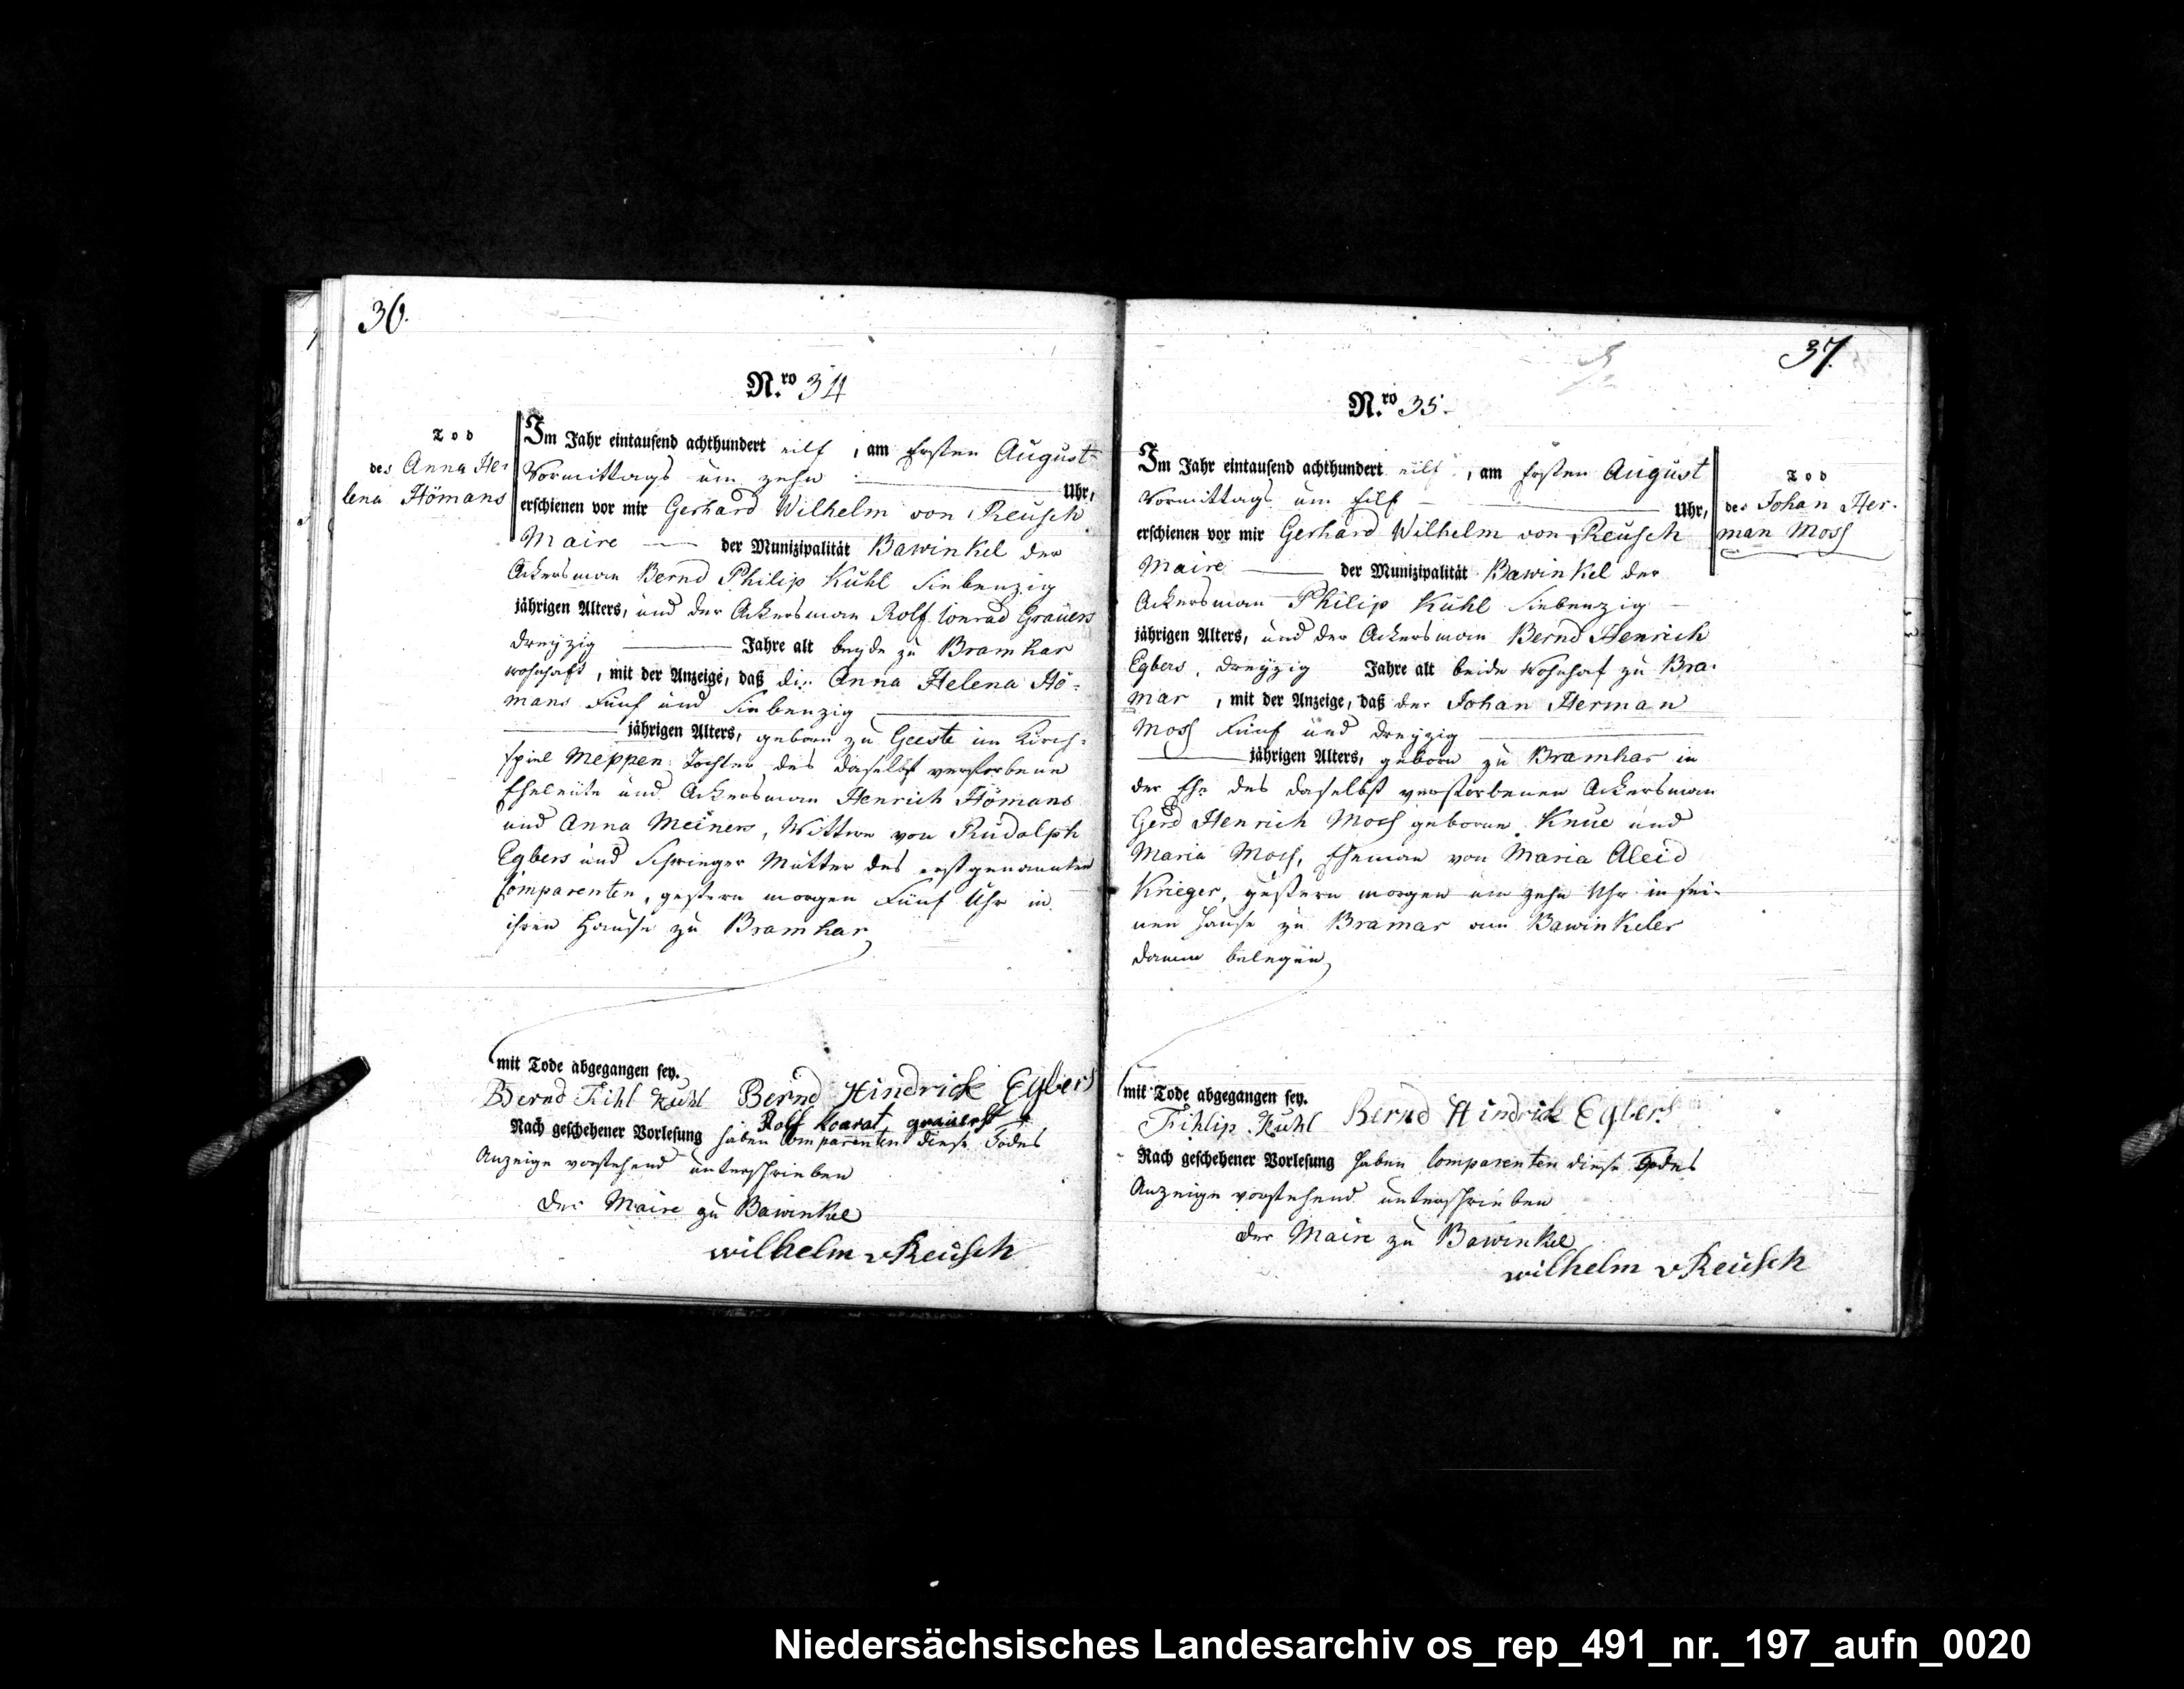 36.
N.ro 34
Tod
des Anna He-
lena Hömans
Im Jahr eintausend achthundert eilf, am Ersten August
Vormittags um zehn Uhr,
erschienen vor mir Gerhard Wilhelm von Reusch
Maire der Munizipalität Bawinkel der
Ackersman Bernd Philip Kuhl Siebenzig
jährigen Alters, und der Ackersman Rolf Conrad Grauers
dreyzig Jahre alt beyde zu Bramhar
wohnhaft, mit der Anzeige, daß die Anna Helena Hö-
mans Fünf und Siebenzig
jährigen Alters, geboren zu Geeste im Kirch-
spiel Meppen Tochter des daselbst verstorbene
Eheleute und Ackersman Henrich Hömans
und Anna Meiners, Wittwe von Rudolph
Egbers und Schwieger Mutter des erstgenannten
Comparenten, gestern morgen Fünf Uhr in
ihren Hause zu Bramhar
mit Tode abgegangen sey.
Bernd Fihl Kuhl Bernd Hindrick Egbers
Rolf Koarat grauerst
Nach geschehener Vorlesung haben Comparenten diese Todes
Anzeige vorstehend unterschrieben
Der Maire zu Bawinkel
wilhelm v Reusch
37.
N.ro 35.
Tod
des Johan Her-
man Moss
Im Jahr eintausend achthundert eilf, am Ersten August
Vormittags um Eilf Uhr,
erschienen vor mir Gerhard Wilhelm von Reusch
Maire der Munizipalität Bawinkel der
Ackersman Philip Kuhl Siebenzig
jährigen Alters, und der Ackersman Bernd Henrich
Egbers, dreyzig Jahre alt beide wohnhaf zu Bra-
mar, mit der Anzeige, daß der Johan Herman
Moss Fünf und dreyzig
jährigen Alters, geboren zu Bramhar in
der Ehe des daselbst verstorbenen Ackersman
Gerd Henrich Moss geborne Knue und
Maria Moss, Eheman von Maria Aleid
Krieger, gestern morgen um zehn Uhr in sei-
nen Hause zu Bramar am Bawinkeler
Damm belegen,
mit Tode abgegangen sey.
Fihlip Kuhl Bernd Hindrick Egbers
Nach geschehener Vorlesung haben Comparenten diese Todes
Anzeige vorstehend unterschrieben
Der Maire zu Bawinkel
wilhelm v Reusch
Niedersächsisches Landesarchiv os_rep_491_nr._197_aufn_0020